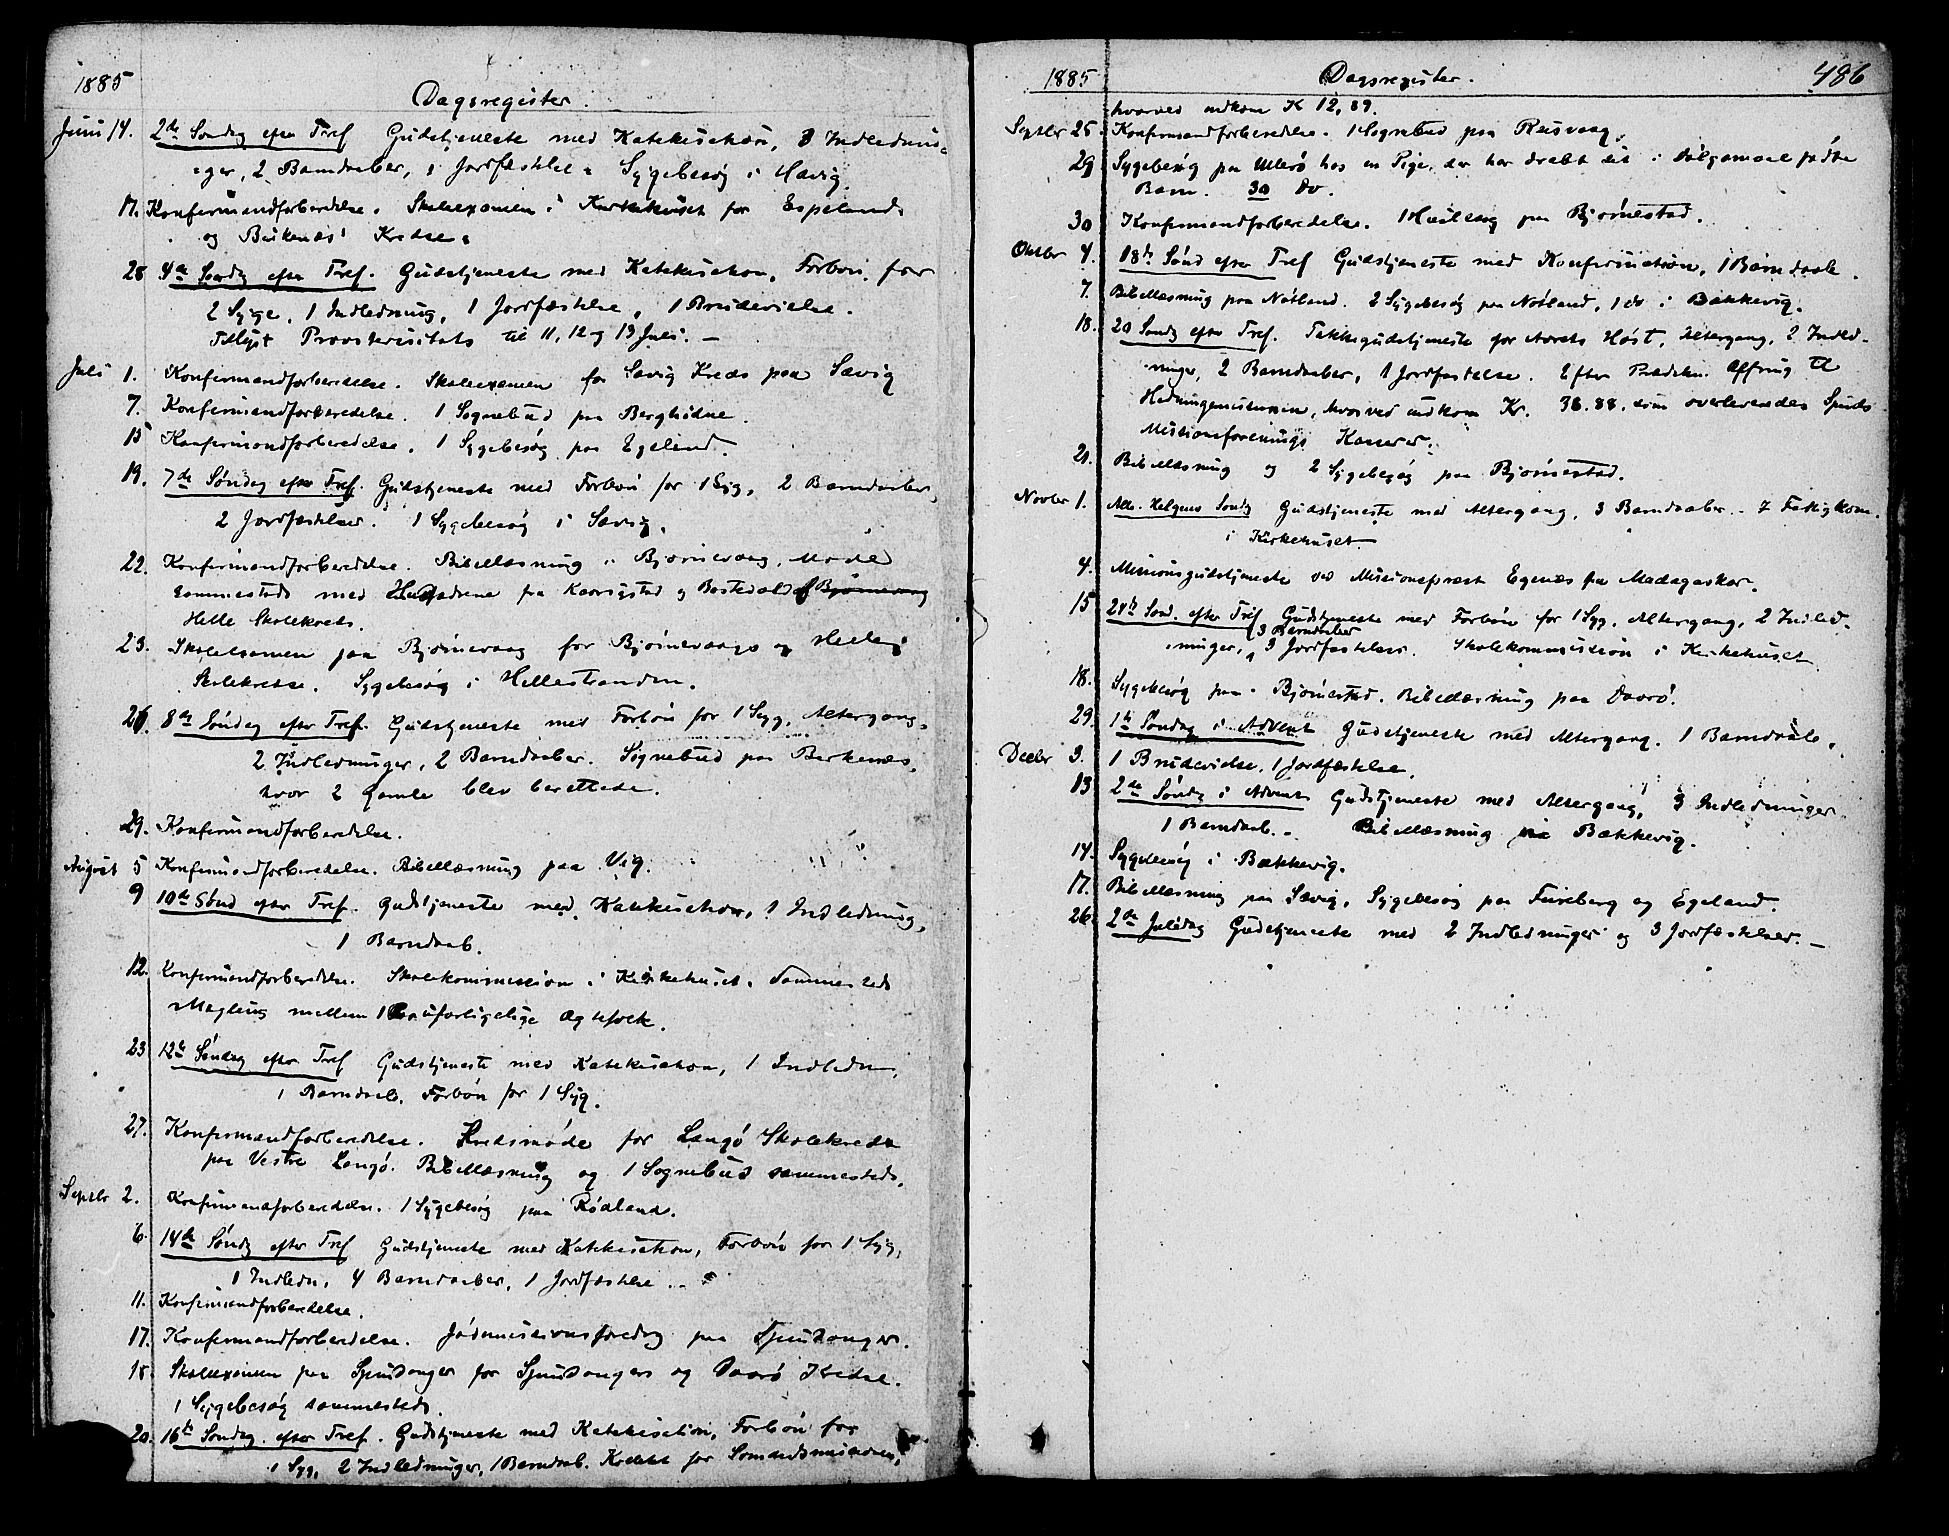 1885
Dagsregister.
Juni 14. 2den Søndag efter Tref Gudstjeneste med Katekisation, 3 Indlednin-
ger, 2 Barndaaber, 1 Jordfæstelse. Sygebesøg i Hævig.
17. Konfirmandforberedelse. Skoleexamen i Kirkehuset for Espelands
og Birkenæs' Kredse.
28 4de Søndg efter Tref. Gudstjeneste med Katekisation, Forbøn for
2 Syge, 1 Indledning, 1 Jordfæstelse, 1 Brudevielse.
Tillyst Provstevisitats til 11, 12 og 13 Juli. —
Juli 1. Konfirmandforberedelse. Skoleexamen for Sævig Kreds paa Sævig
7. Konfirmandforberedelse. 1 Sognebud paa
15 Konfirmandforberedelse. 1 Sygebesøg paa Egeland.
19. 7de Søndag efter Tref. Gudstjeneste med Forbøn for 1 Syg, 2 Barndaaber,
2 Jordfæstelser. 1 Sygebesøg i Sævig.
22. Konfirmandforberedelse. Bibellæsning i Bjørnevaag, Møde
sammesteds med fra og
Helle Skolekreds.
23. Skoleexamen paa Bjørnevaag for Bjørnevaags og Helle
Skolekredse. Sygebesøg i Hellestranden.
26. 8de Søndag efter Tref. Gudstjeneste med Forbøn for 1 Syg, Altergang,
2 Indledninger, 2 Barndaaber. Sognebud paa Berkenæs,
hvor 2 Gamle blev berettede.
29. Konfirmandforberedelse.
August 5 Konfirmandforberedelse. Bibellæsning paa Vig.
9 10de Sønd efter Tref. Gudstjeneste med Katekisation, 1 Indledning,
1 Barndaab.
12. Konfirmandforberedelse. Skolekommission i Kirkehuset. Sammesteds
Mægling mellem 1 Par uforligelige Ægtefolk.
23 12te Søndag efter Tref Gudstjeneste med Katekisation, 1 Indledn.,
1 Barndaab. Forbøn for 1 Syg.
27. Konfirmandforberedelse. Kredsmøde for Langø Skolekreds
paa Vestre Langø. Bibellæsning og 1 Sognebud sammesteds.
Septbr 2. Konfirmandforberedelse. 1 Sygebesøg paa Rødland.
6. 14de Søndg efter Tref Gudstjeneste med Katekisation, Forbøn for 1 Syg,
1 Indledn, 4 Barndaaber, 1 Jordfæstelse.
11. Konfirmandforberedelse.
17. Konfirmandforberedelse. Jødemissionsforedrag paa Spindanger.
18 Skoleexamen paa Spindanger for Spindangers og Daarø Kredse.
1 Sygebesøg sammesteds.
20. 16de Søndag efter Tref. Gudstjeneste med Katekisation, Forbøn for
1 Syg, 2 Indledninger, 1 Barndaab. Kollekt for Sømandsmissionen,
1885
Dagsregister.
486
hvorved indkom K 12,89.
Septbr 25. Konfirmandforberedelse. 1 Sognebud paa Reisvaag.
29 Sygebesøg paa Ullerø hos en Pige, der har dræbt sit i Dølgsmaal fødte
Barn. 30 do.
30 Konfirmandforberedelse. 1 paa Bjørnestad.
Oktbr 4. 18de Sønd efter Tref Gudstjeneste med Konfirmation, 1 Barndaab.
7. Bibellæsning paa Nøtland. 2 Sygebesøg paa Nøtland, 1 do i Bækkevig.
18. 20 Søndg efter Tref. Takkegudstjeneste for Aarets Høst, Altergang, 2 Indled-
ninger, 2 Barndaaber, 1 Jordfæstelse. Efter Prædiken Offring til
Hedningemissionen, hvorved indkom Kr. 38.88. som overleveredes Spinds
Missionsforenings Kasserer.
21. Bibellæsning og 2 Sygebesøg paa Bjørnestad.
Novbr 1. Alle Helgens Søndg Gudstjeneste med Altergang, 3 Barndaaber. Fattigkom.
i Kirkehuset.
4. Missionsgudstjeneste ved Missionsprest Egenæs fra Madagaskar.
15 24de Sønd. efter Tref Gudstjeneste med Forbøn for 1 Syg, Altergang, 2 Indled-
3 Barndaaber
ninger, 3 Jordfæstelser. Skolekommission i Kirkehuset
18. Sygebesøg paa Bjørnestad. Bibellæsning paa Daarø.
29. 1te Søndag i Advent Gudstjeneste med Altergang. 1 Barndaab.
Decbr 3. 1 Brudevielse, 1 Jordfæstelse.
13 2den Søndg i Advent Gudstjeneste med Altergang, 3 Indledninger
1 Barndaab. Bibellæsning Bækkevig.
14. Sygebesøg i Bækkevig.
17. Bibellæsning paa Sævig, Sygebesøg paa Fureberg og Egeland.
26. 2den Juledag Gudstjeneste med 2 Indledninger og 3 Jordfæstelser. —